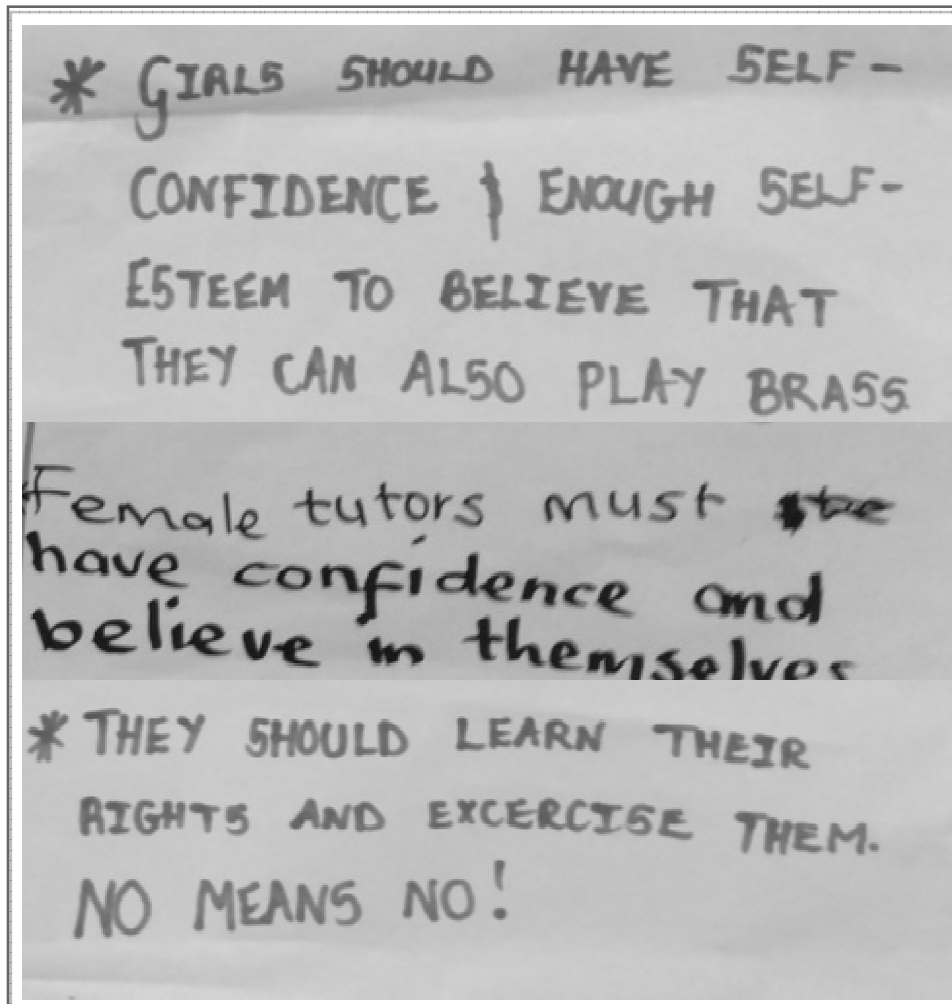 * GIRLS SHOULD HAVE SELF-
CONFIDENCE & ENOUGH SELF-
ESTEEM TO BELIEVE THAT
THEY CAN ALSO PLAY BRASS
Female tutors must
have confidence and
believe in themselves
* THEY SHOULD LEARN THEIR
RIGHTS AND EXCERCISE THEM.
NO MEANS NO!